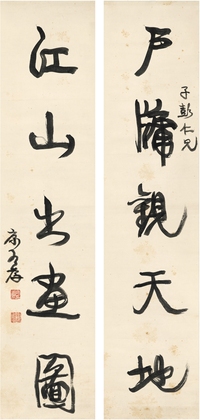 戶牖觀天地
子彭仁兄
江山出畫圖
康有為